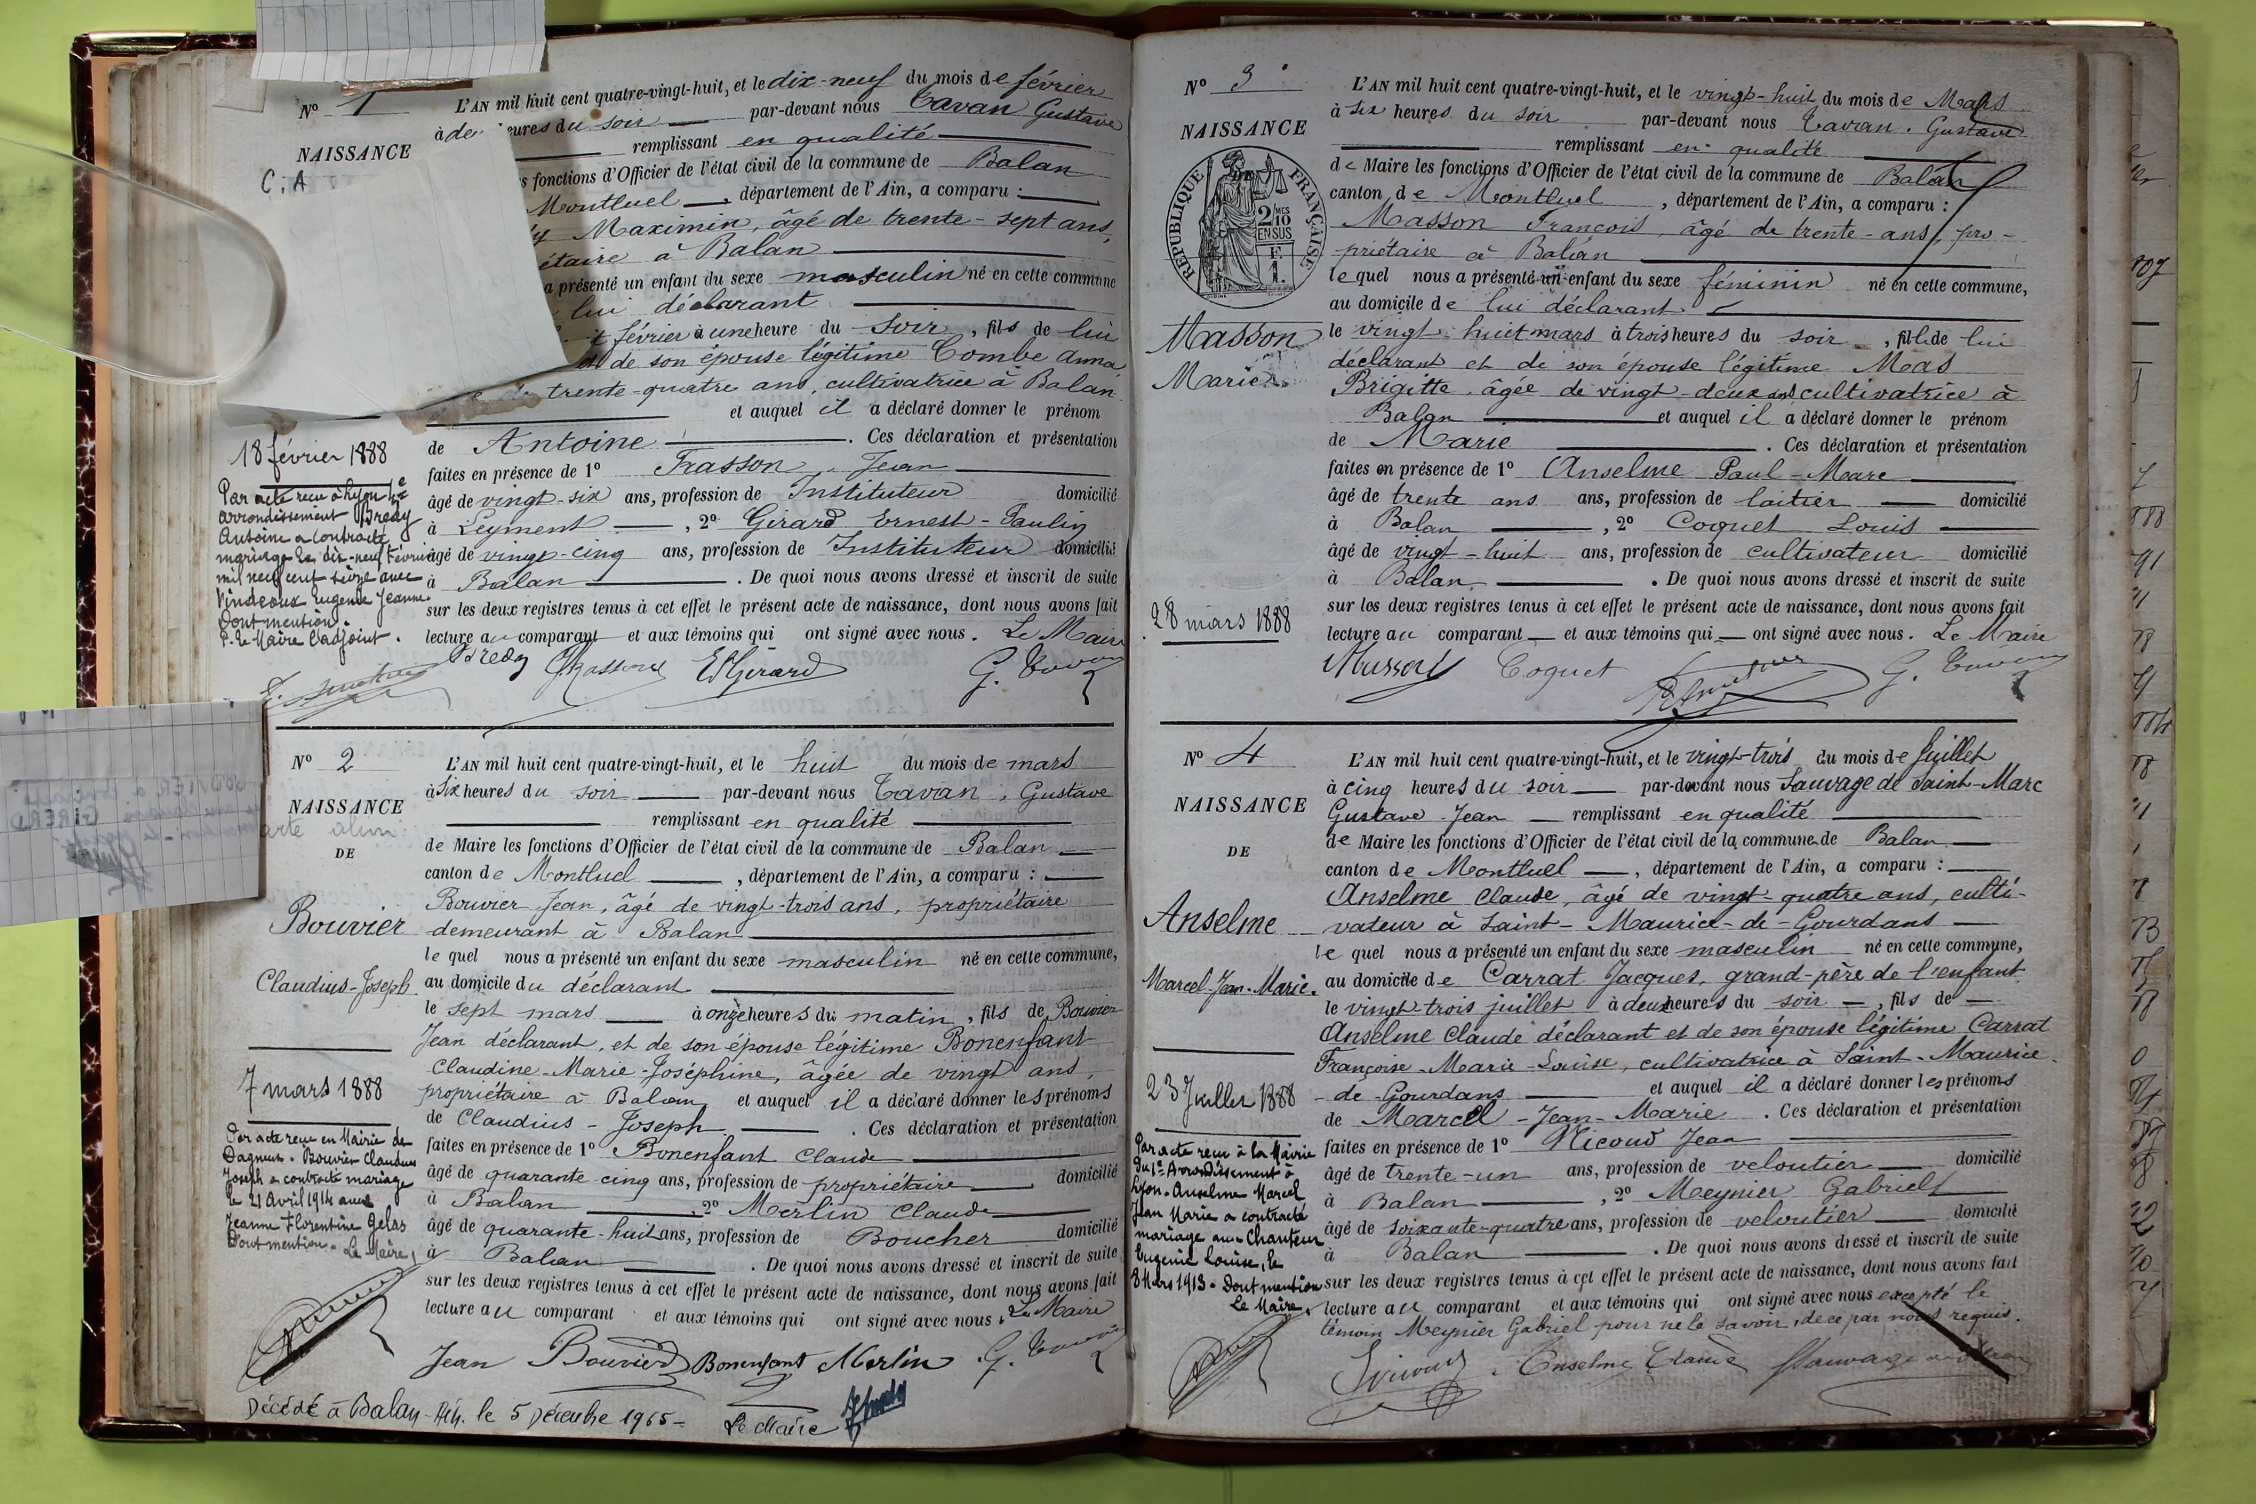 Nº 1
NAISSANCE
C. A
18 février 1888
Par acte reçu à Lyon
arrondissement Bredy
Antoine a contracté
mariage le dix-neuf février
mil neuf cent seize avec
Vindeaux Eugénie Jeanne.
Dont mention.
P. le Maire l'adjoint.
L'AN mil huit cent quatre-vingt-huit, et le dix-neuf du mois de février
eures du soir par-devant nous Tavan Gustave
remplissant en qualité
s fonctions d'Officier de l'état civil de la commune de Balan
Montluel, département de l'Ain, a comparu :
y Maximin, âgé de trente-sept ans,
étaire à Balan
a présenté un enfant du sexe masculin né en cette commune
lui déclarant
t février à une heure du soir, fils de lui
et de son épouse légitime Combe Anna
trente-quatre ans, cultivatrice à Balan
et auquel il a déclaré donner le prénom
de Antoine. Ces déclaration et présentation
faites en présence de 1º Frasson Jean
âgé de vingt-six ans, profession de Instituteur domicilié
à Leyment, 2º Girard Ernest-Paulin
âgé de vingt-cinq ans, profession de Instituteur domicilié
à Balan. De quoi nous avons dressé et inscrit de suite
sur les deux registres tenus à cet effet le présent acte de naissance, dont nous avons fait
lecture au comparant et aux témoins qui ont signé avec nous. Le Maire
Bredy Frasson E. Girard G. Tavan
Nº 2
NAISSANCE
DE
Bouvier
Claudius-Joseph
7 mars 1888
Par acte reçu en Mairie de
Dagneux. Bouvier Claudius
Joseph a contracté mariage
le 21 Avril 1914 avec
Jeanne Florentine Gelas
Dont mention. Le Maire,
L'AN mil huit cent quatre-vingt-huit, et le huit du mois de mars
à six heures du soir par-devant nous Tavan, Gustave
remplissant en qualité
de Maire les fonctions d'Officier de l'état civil de la commune de Balan
canton de Montluel, département de l'Ain, a comparu :
Bouvier Jean, âgé de vingt-trois ans, propriétaire
demeurant à Balan
lequel nous a présenté un enfant du sexe masculin né en cette commune,
au domicile du déclarant
le sept mars à onze heures du matin, fils de Bouvier
Jean déclarant, et de son épouse légitime Bonenfant
Claudine-Marie-Joséphine, âgée de vingt ans,
propriétaire à Balan et auquel il a déclaré donner les prénoms
de Claudius-Joseph. Ces déclaration et présentation
faites en présence de 1º Bonenfant Claude
âgé de quarante-cinq ans, profession de propriétaire domicilié
à Balan, 2º Merlin Claude
âgé de quarante-huit ans, profession de Boucher domicilié
à Balan. De quoi nous avons dressé et inscrit de suite
sur les deux registres tenus à cet effet le présent acte de naissance, dont nous avons fait
lecture au comparant et aux témoins qui ont signé avec nous. Le Maire
Jean Bouvier Bonenfant Merlin G. Tavan
Décédé à Balan-Ain. le 5 Décembre 1965-
Le Maire
Nº 3
NAISSANCE
DE
RÉPUBLIQUE FRANÇAISE
2/10 MES
EN SUS
F.
1.
Masson
Marie
28 mars 1888
L'AN mil huit cent quatre-vingt-huit, et le vingt-huit du mois de Mars
à six heures du soir par-devant nous Tavan. Gustave
remplissant en qualité
de Maire les fonctions d'Officier de l'état civil de la commune de Balan
canton de Montluel, département de l'Ain, a comparu :
Masson François, âgé de trente-ans, pro-
priétaire à Balan
lequel nous a présenté un enfant du sexe féminin né en cette commune,
au domicile de lui déclarant
le vingt-huit mars à trois heures du soir, fille de lui
déclarant et de son épouse légitime Mas
Brigitte, âgée de vingt-deux ans cultivatrice à
Balan et auquel il a déclaré donner le prénom
de Marie. Ces déclaration et présentation
faites en présence de 1º Anselme Paul-Marc
âgé de trente ans ans, profession de laitier domicilié
à Balan, 2º Coquet Louis
âgé de vingt-huit ans, profession de cultivateur domicilié
à Balan. De quoi nous avons dressé et inscrit de suite
sur les deux registres tenus à cet effet le présent acte de naissance, dont nous avons fait
lecture au comparant et aux témoins qui ont signé avec nous. Le Maire
Masson Coquet G. Tavan
Nº 4
NAISSANCE
DE
Anselme
Marcel-Jean-Marie.
23 Juillet 1888
Par acte reçu à la Mairie
du 1er Arrondissement à
Lyon. Anselme Marcel
Jean Marie a contracté
mariage avec Chanteur
Eugénie Louise, le
8 Mars 1913. Dont mention
Le Maire,
L'AN mil huit cent quatre-vingt-huit, et le vingt-trois du mois de Juillet
à cinq heures du soir par-devant nous Sauvage de Saint-Marc
Gustave Jean remplissant en qualité
de Maire les fonctions d'Officier de l'état civil de la commune de Balan
canton de Montluel, département de l'Ain, a comparu :
Anselme Claude, âgé de vingt-quatre ans, culti-
vateur à Saint-Maurice-de-Gourdans
lequel nous a présenté un enfant du sexe masculin né en cette commune,
au domicile de Carrat Jacques, grand-père de l'enfant
le vingt-trois juillet à deux heures du soir, fils de
Anselme Claude déclarant et de son épouse légitime Carrat
Françoise-Marie-Louise, cultivatrice à Saint-Maurice
-de-Gourdans et auquel il a déclaré donner les prénoms
de Marcel-Jean-Marie. Ces déclaration et présentation
faites en présence de 1º Nicoud Jean
âgé de trente-un ans, profession de veloutier domicilié
à Balan, 2º Meynier Gabriel
âgé de soixante-quatre ans, profession de veloutier domicilié
à Balan. De quoi nous avons dressé et inscrit de suite
sur les deux registres tenus à cet effet le présent acte de naissance, dont nous avons fait
lecture au comparant et aux témoins qui ont signé avec nous excepté le
témoin Meynier Gabriel pour ne le savoir, de ce par nous requis.
Nicoud Anselme Claude Sauvage